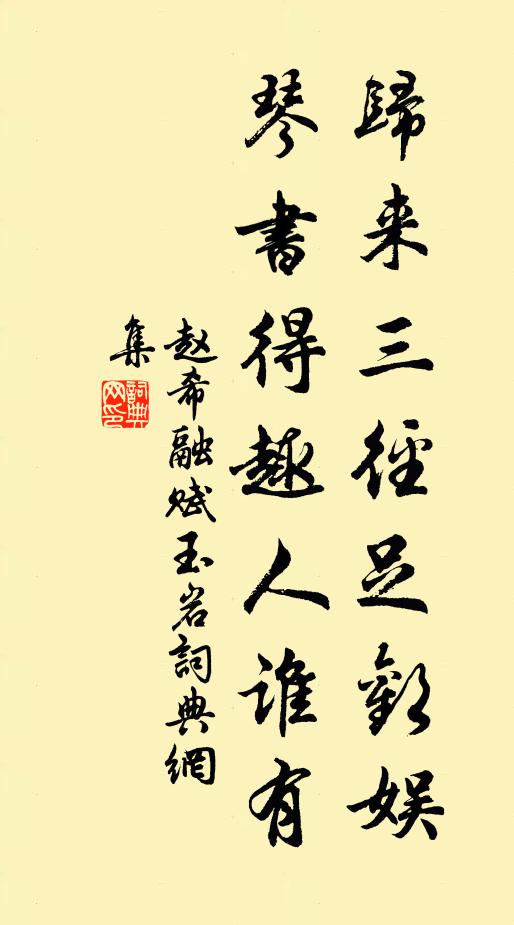 歸来三徑足歡娱
琴書得趣人誰有
赵希融赋玉岩詞典網
集
詞典网印